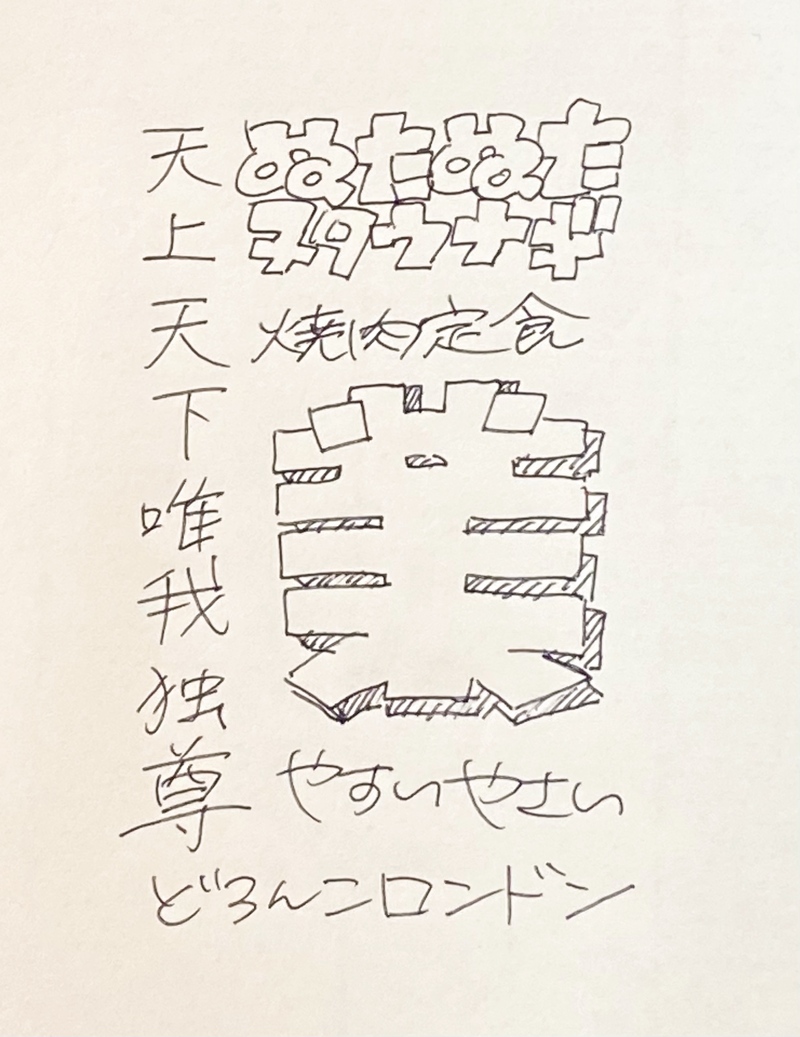 天上天下唯我独尊
ぬたぬた
ヌタウナギ
焼肉定食
業
やすいやさい
どろんこロンドン